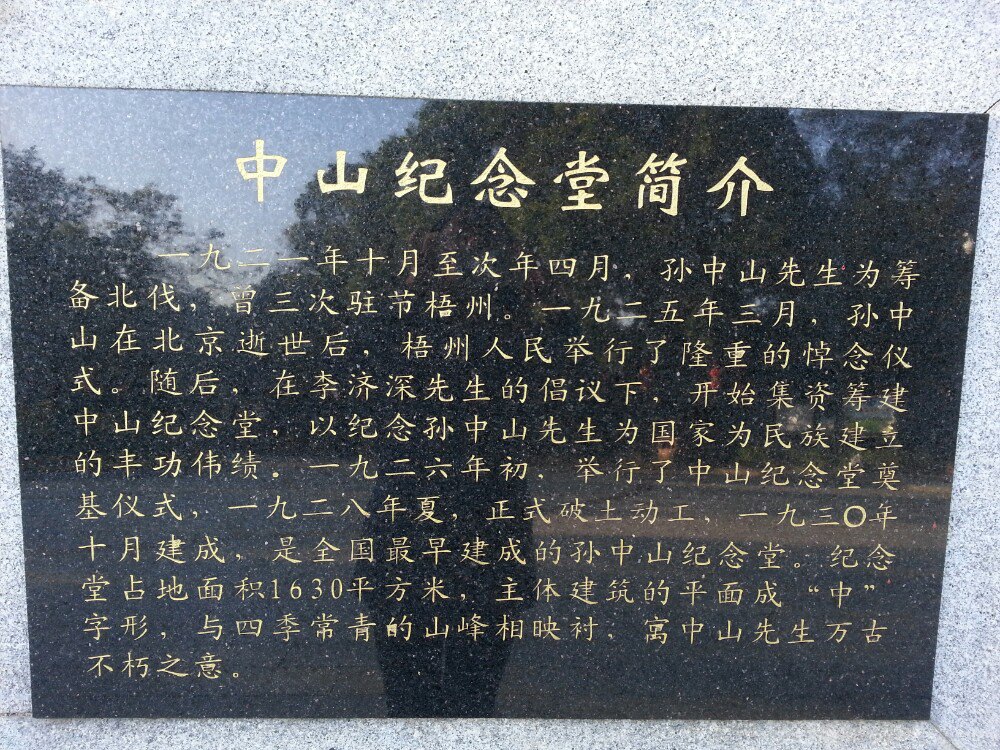 中山纪念堂简介
一九二一年十月至次年四月，孙中山先生为筹
备北伐，曾三次驻节梧州。一九二五年三月，孙中
山在北京逝世后，梧州人民举行了隆重的悼念仪
式。随后，在李济深先生的倡议下，开始集资筹建
中山纪念堂，以纪念孙中山先生为国家为民族建立
的丰功伟绩。一九二六年初，举行了中山纪念堂奠
基仪式，一九二八年夏，正式破土动工，一九三〇年
十月建成，是全国最早建成的孙中山纪念堂。纪念
堂占地面积1630平方米，主体建筑的平面成“中”
字形，与四季常青的山峰相映衬，寓中山先生万古
不朽之意。